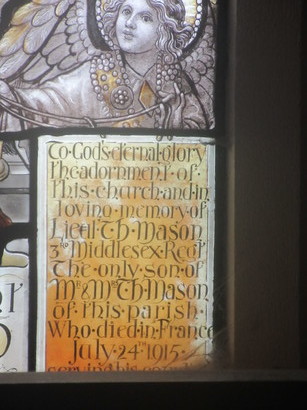 To·God's·eternal·glory
The·adornment·of·
This·church·and·in
loving·memory·of
Lieut·Th·Mason
3RD·Middlesex·Regt
The·only·son·of
Mr·&·Mrs·Th·Mason
of·this·parish·
Who·died·in·France
July·24th·1915·
serving·his